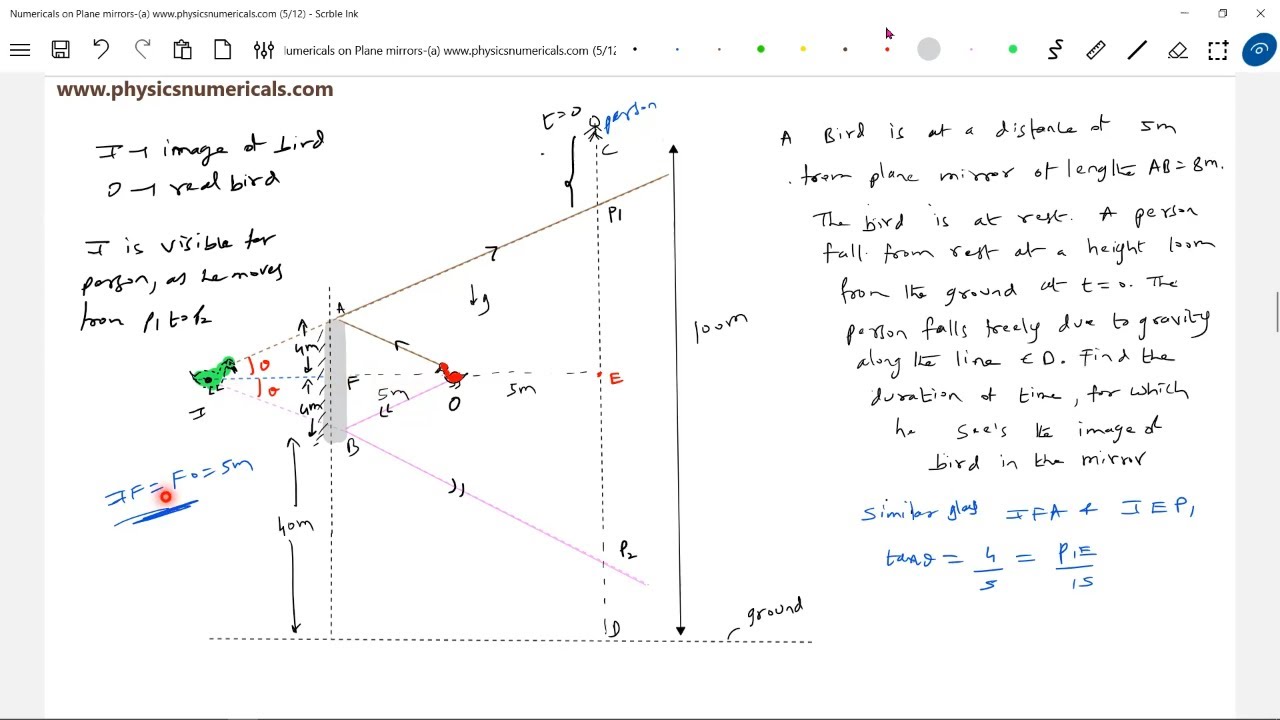 Numericals on Plane mirrors-(a) www.physicsnumericals.com (5/12) - Scrble Ink
lumericals on Plane mirrors-(a) www.physicsnumericals.com (5/12
www.physicsnumericals.com
I → image of bird
O → real bird
I is visible for
person, as he moves
from P1 to P2
IF = FO = 5m
t=0
person
C
P1
A
↓g
100m
4m
θ
F
E
θ
4m
5m
5m
I
O
B
40m
P2
D
ground
A Bird is at a distance of 5m
from plane mirror of length AB = 8m.
The bird is at rest. A person
fall from rest at a height 100m
from the ground at t=0. The
person falls freely due to gravity
along the line CD. Find the
duration of time, for which
he see's the image of
bird in the mirror
Similar IFA & IEP1
tanθ = 4/5 = P1E/15